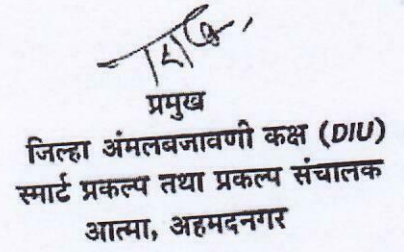 प्रमुख
जिल्हा अंमलबजावणी कक्ष (DIU)
स्मार्ट प्रकल्प तथा प्रकल्प संचालक
आत्मा, अहमदनगर